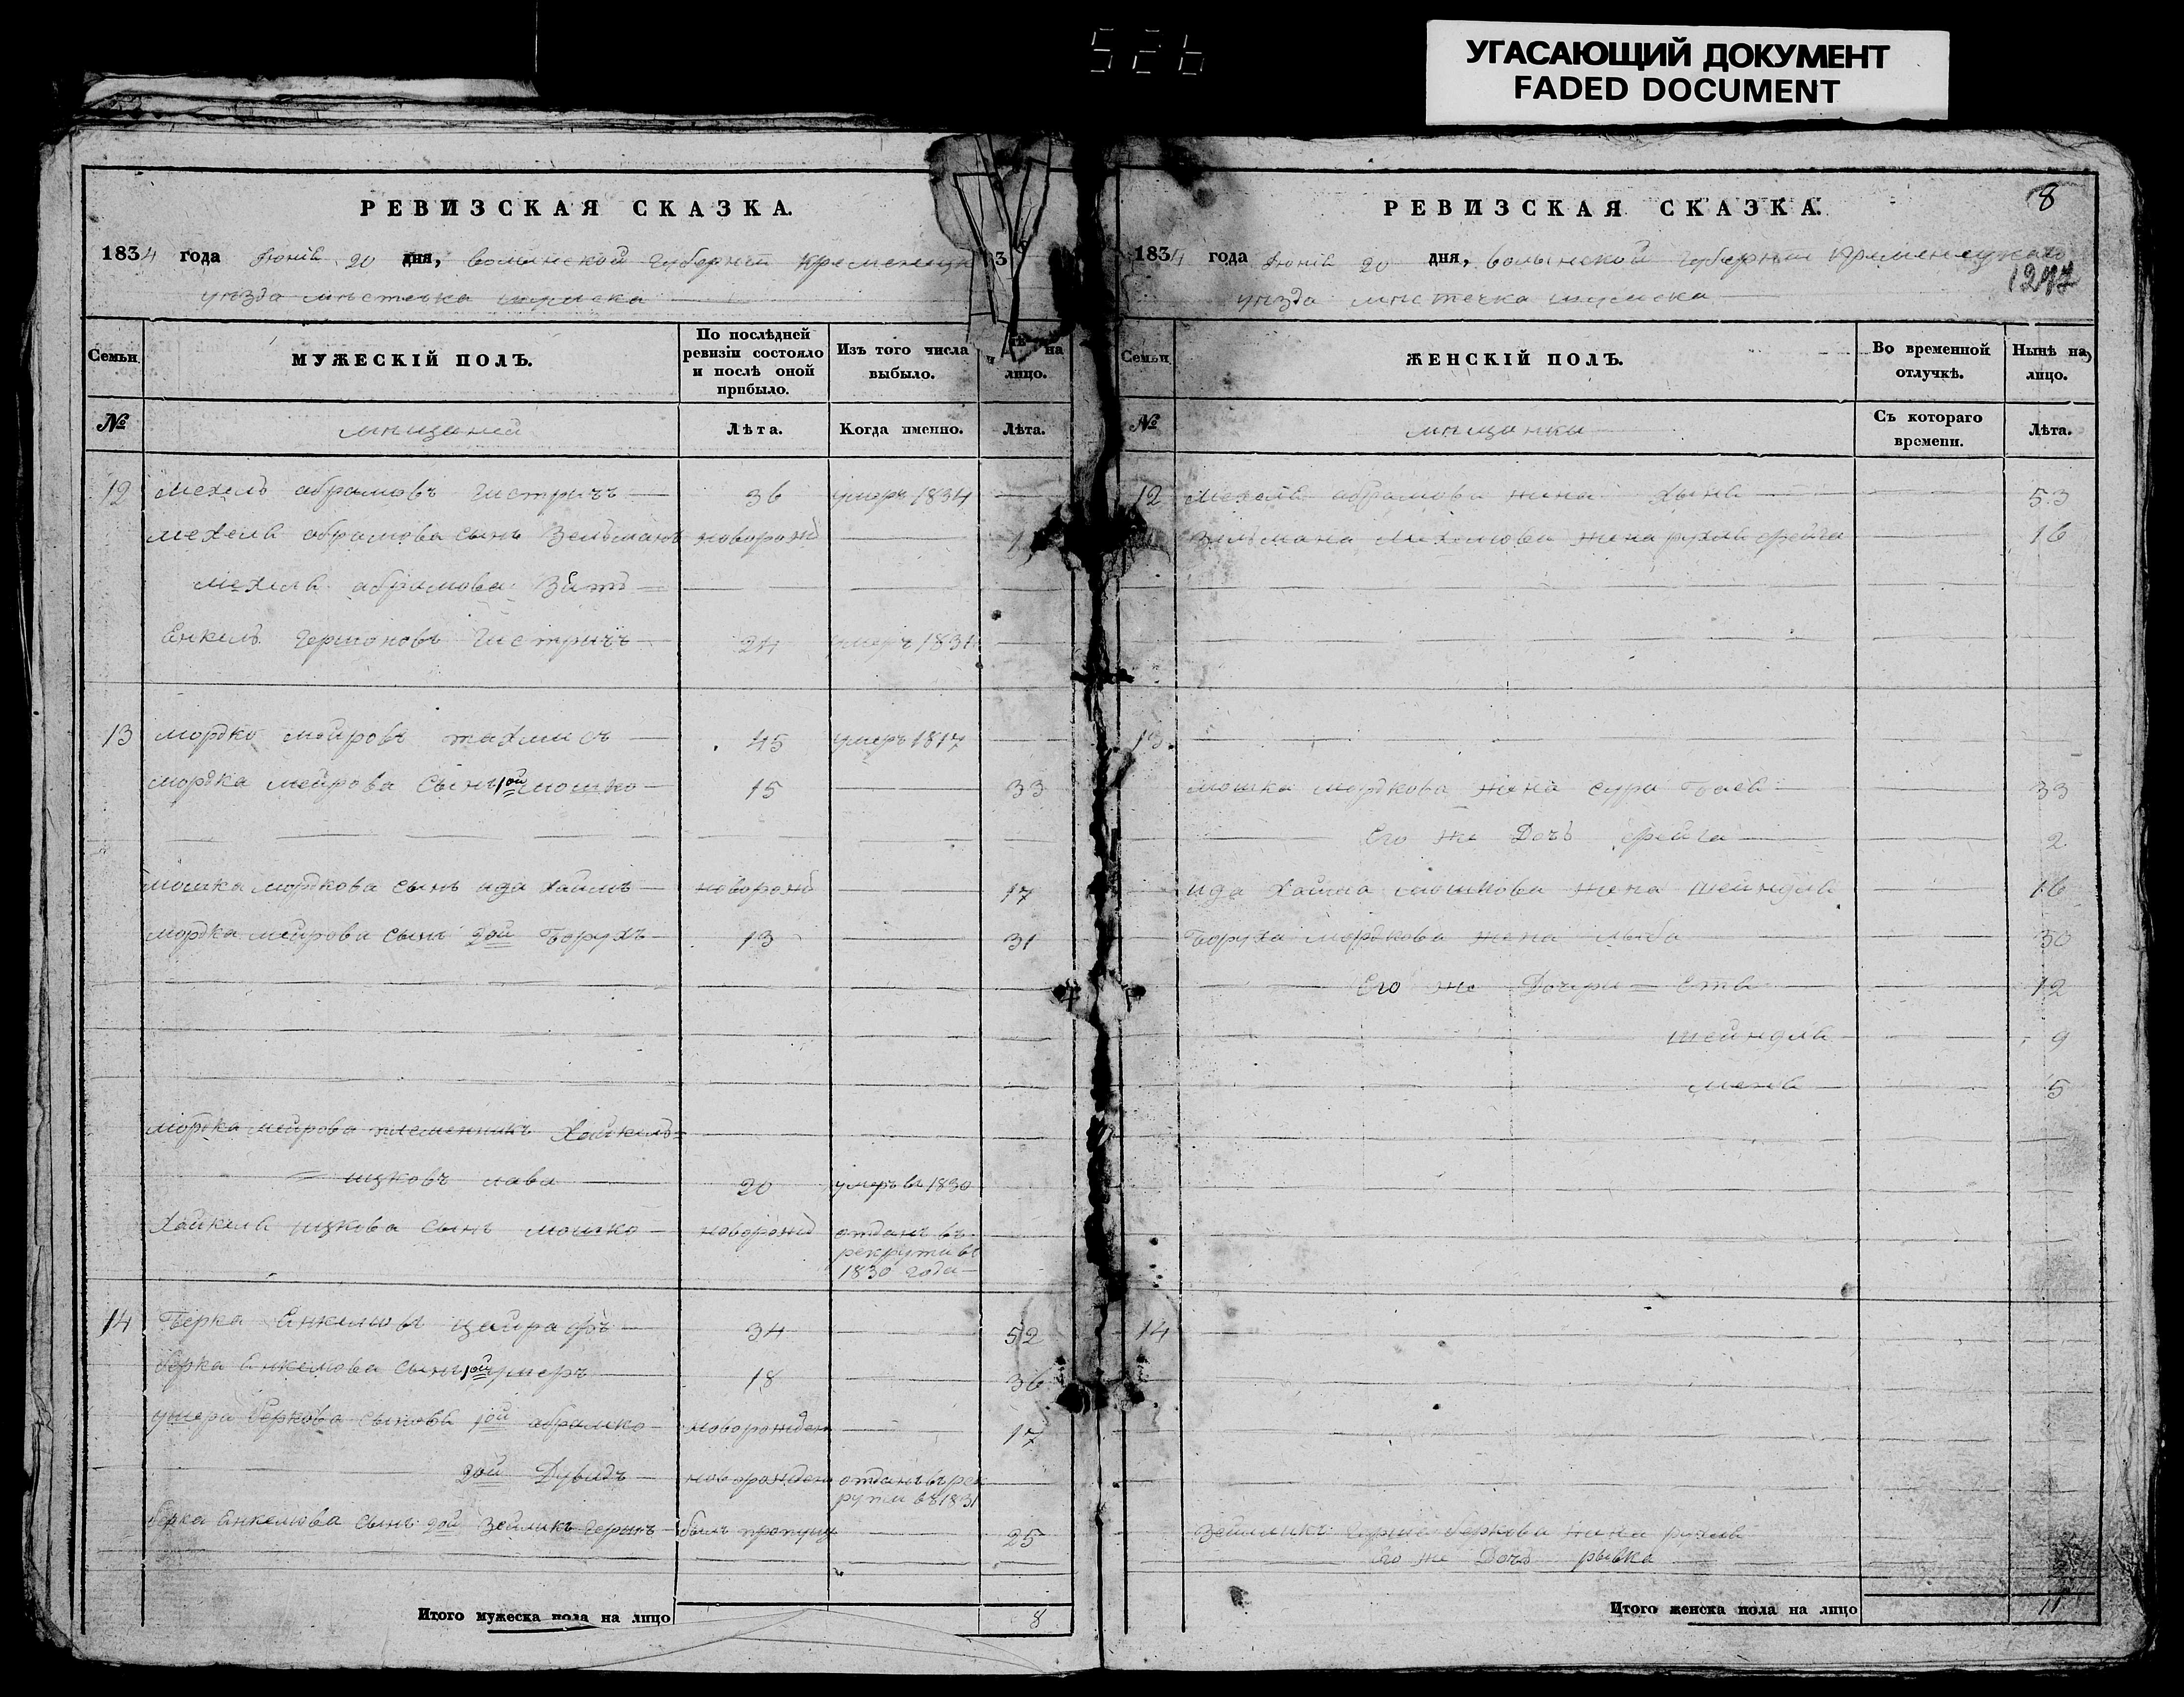 526
УГАСАЮЩИЙ ДОКУМЕНТ
FADED DOCUMENT
РЕВИЗСКАЯ СКАЗКА.
1834 года Июнів 20 дня, волынской губерніи кременецк
уѣзда мѣстечка шумска
Семьи
МУЖЕСКІЙ ПОЛЪ.
По послѣдней ревизіи состояло и послѣ оной прибыло.
Изъ того числа выбыло.
на лицо.
№
мѣщаней
Лѣта.
Когда именно.
Лѣта.
12 мехель абрамовъ 36 умеръ 1834
мехеля абрамова сынъ Зельманъ новорожд
мехеля абрамова Зять
Енкель Гершоновъ 24 умеръ 1831
13 мордко мейровъ 45 умеръ 1817
мордка мейрова сынъ 1ой мошко 15 33
мошка мордкова сынъ ида хаимъ новорожд 17
мордка мейрова сынъ 2ой Борухъ 13 31
мордка мейрова племенникъ Хайкель
ицковъ 20 умеръ въ 1830
Хайкеля ицкова сынъ мошко новорожд отданъ въ
рекруты въ
1830 года
14 Берка Енкелювъ 34 52
берка Енкелюва сынъ 1ой умеръ 18 36
умера беркова сыновя 1ой абрамко новорожден 17
2ой Дувидъ новорожден отданъ въ рек
руты въ 1831
берка Енкелюва сынъ 2ой Зейликъ Гершъ былъ пропущ 25
Итого мужеска пола на лицо 8
РЕВИЗСКАЯ СКАЗКА.
8
1834 года Июнів 20 дня, волынской губерніи кременецкаго
1247
уѣзда мѣстечка шумска
Семьи
ЖЕНСКІЙ ПОЛЪ.
Во временной отлучкѣ.
Нынѣ на лицо.
№
мѣщанки
Съ котораго времени.
Лѣта.
12 мехеля абрамова жена 53
Зельмана мехелюва жена рухля фейга 16
13
мошка мордкова жена сура 33
Его же Дочь фейга 2
ида хаима мошкова жена шейндля 16
Боруха мордкова жена 30
Его же Дочери 12
шейндля 9
5
14
Зейликъ Герша беркова жена рухля
Его же Дочь рывка
Итого женска пола на лицо 11